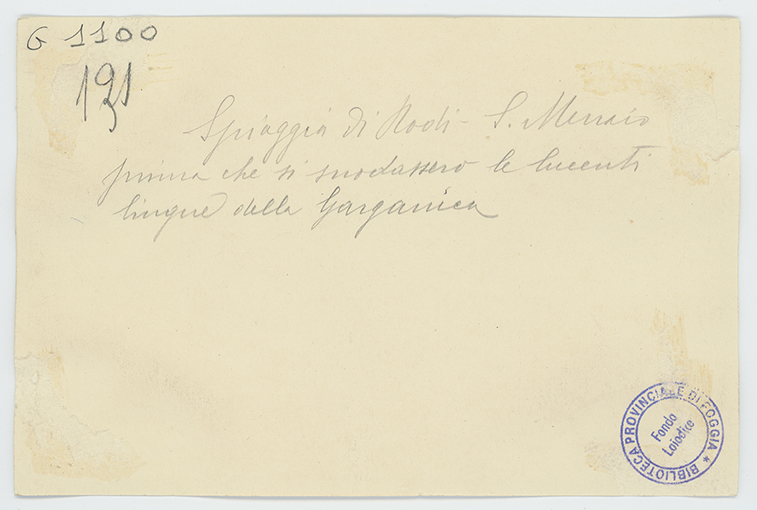 G 1100
191
Spiaggia di Rodi - S. Menaio
prima che si snodassero le lucenti
lingue della Garganica
BIBLIOTECA PROVINCIALE DI FOGGIA *
Fondo
Loiodice